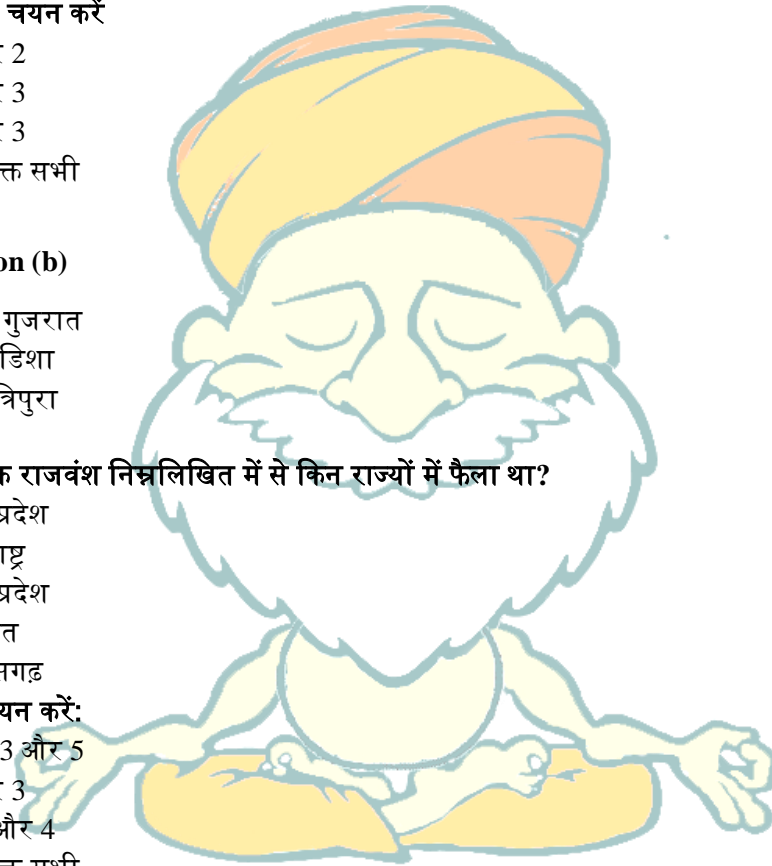 चयन करें
2
3
3
सभी
on (b)
गुजरात
डिशा
त्रिपुरा
क राजवंश निम्नलिखित में से किन राज्यों में फैला था?
प्रदेश
ाष्ट्र
प्रदेश
त
सगढ़
यन करें:
3 और 5
3
और 4